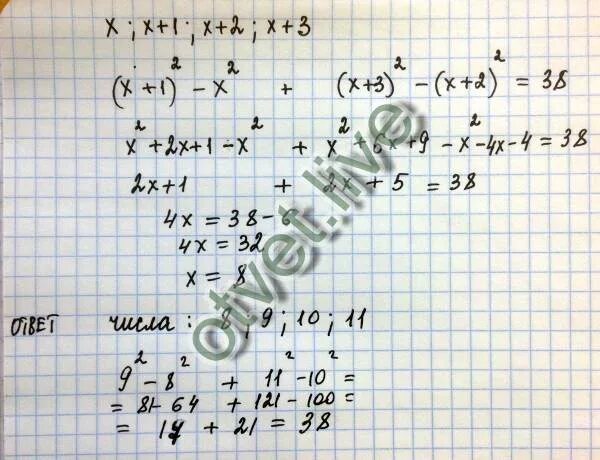 x ; x+1 ; x+2 ; x+3
(x+1)² - x² + (x+3)² - (x+2)² = 38
x² + 2x+1 - x² + x² + 6x+9 - x² - 4x - 4 = 38
2x+1 + 2x + 5 = 38
4x = 38 - 6
4x = 32
x = 8
ОТВЕТ числа : 8 ; 9 ; 10 ; 11
9² - 8² + 11² - 10² =
= 81 - 64 + 121 - 100 =
= 17 + 21 = 38
otvet.live